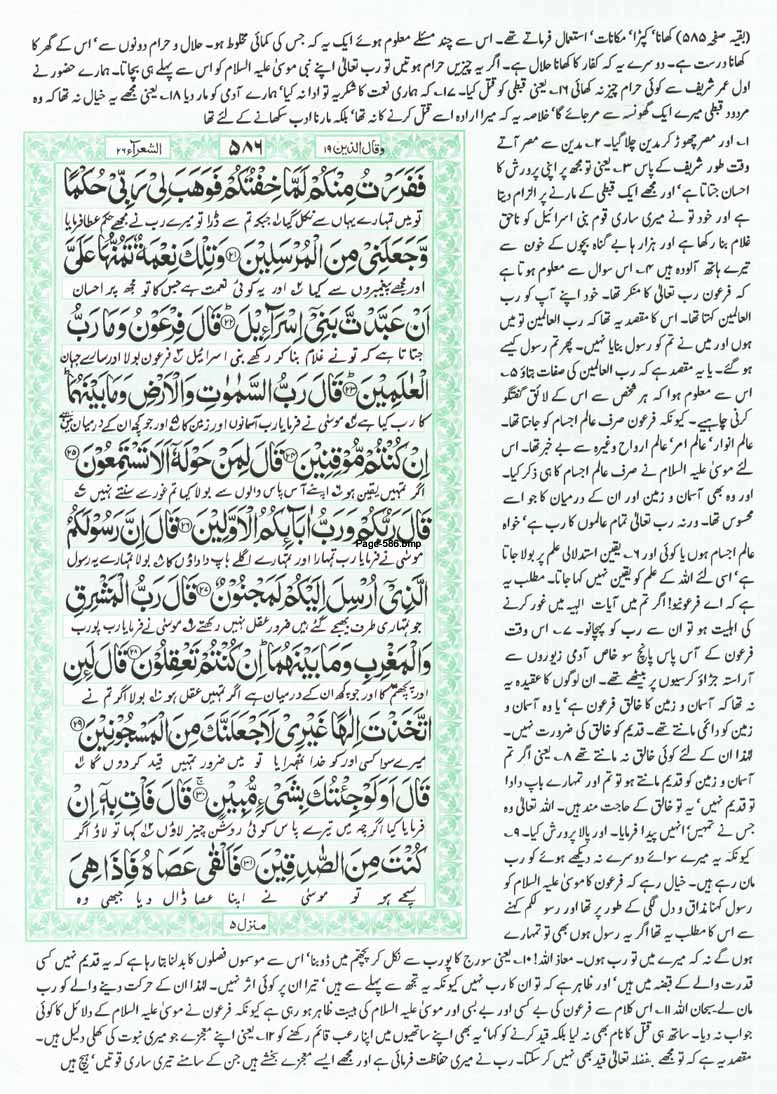 (بقیہ صفحہ ۵۸۵) کھانا' کپڑا' مکانات' استعمال فرماتے تھے۔ اس سے چند مسئلے معلوم ہوئے ایک یہ کہ جس کی کمائی مخلوط ہو۔ حلال و حرام دونوں سے' اس کے گھر کا
کھانا درست ہے۔ دوسرے یہ کہ کفار کا کھانا حلال ہے۔ اگر یہ چیزیں حرام ہوتیں تو رب تعالیٰ اپنے نبی موسیٰ علیہ السلام کو اس سے پہلے ہی بچاتا۔ ہمارے حضور نے
اول عمر شریف سے کوئی حرام چیز نہ کھائی ۱۶۔ یعنی قبطی کو قتل کیا۔ ۱۷۔ کہ ہماری نعمت کا شکریہ تو ادا نہ کیا' ہمارے آدمی کو مار دیا ۱۸۔ یعنی مجھے یہ خیال نہ تھا کہ وہ
مردود قبطی میرے ایک گھونسہ سے مر جائے گا' خلاصہ یہ کہ میرا ارادہ اسے قتل کرنے کا نہ تھا' بلکہ مارنا ادب سکھانے کے لئے تھا
وقال الذین ۱۹
۵۸۶
الشعرآء ۲۶
فَفَرَرْتُ مِنْكُمْ لَمَّا خِفْتُكُمْ فَوَهَبَ لِیْ رَبِّیْ حُكْمًا
تو میں تمہارے یہاں سے نکل گیا جبکہ تم سے ڈرا تو میرے رب نے مجھے حکم عطا فرمایا
وَّجَعَلَنِیْ مِنَ الْمُرْسَلِیْنَ ﴿۲۱﴾ وَتِلْكَ نِعْمَةٌ تَمُنُّهَا عَلَیَّ
اور مجھے پیغمبروں سے کیا اور یہ کوئی نعمت ہے جس کا تو مجھ پر احسان
اَنْ عَبَّدْتَّ بَنِیْۤ اِسْرَآءِیْلَ ﴿۲۲﴾ قَالَ فِرْعَوْنُ وَمَا رَبُّ
جتاتا ہے کہ تو نے غلام بنا کر رکھے بنی اسرائیل فرعون بولا اور سارے جہان
الْعٰلَمِیْنَ ﴿۲۳﴾ قَالَ رَبُّ السَّمٰوٰتِ وَالْاَرْضِ وَمَا بَیْنَهُمَا
کا رب کیا ہے موسیٰ نے فرمایا رب آسمانوں اور زمین کا اور جو کچھ ان کے درمیان میں ہے
اِنْ كُنْتُمْ مُّوْقِنِیْنَ ﴿۲۴﴾ قَالَ لِمَنْ حَوْلَهٗۤ اَلَا تَسْتَمِعُوْنَ ﴿۲۵﴾
اگر تمہیں یقین ہو اپنے آس پاس والوں سے بولا کیا تم غور سے سنتے نہیں
قَالَ رَبُّكُمْ وَرَبُّ اٰبَآئِكُمُ الْاَوَّلِیْنَ ﴿۲۶﴾ قَالَ اِنَّ رَسُوْلَكُمُ
Page-586.bmp
موسیٰ نے فرمایا رب تمہارا اور تمہارے اگلے باپ داداؤں کا بولا تمہارے یہ رسول
الَّذِیْۤ اُرْسِلَ اِلَیْكُمْ لَمَجْنُوْنٌ ﴿۲۷﴾ قَالَ رَبُّ الْمَشْرِقِ
جو تمہاری طرف بھیجے گئے ہیں ضرور عقل نہیں رکھتے موسیٰ نے فرمایا رب پورب
وَالْمَغْرِبِ وَمَا بَیْنَهُمَا اِنْ كُنْتُمْ تَعْقِلُوْنَ ﴿۲۸﴾ قَالَ لَئِنِ
اور پچھم کا اور جو کچھ ان کے درمیان ہے اگر تمہیں عقل ہو بولا اگر تم نے
اتَّخَذْتَ اِلٰهًا غَیْرِیْ لَاَجْعَلَنَّكَ مِنَ الْمَسْجُوْنِیْنَ ﴿۲۹﴾
میرے سوا کسی اور کو خدا ٹھہرایا تو میں ضرور تمہیں قید کر دوں گا
قَالَ اَوَلَوْ جِئْتُكَ بِشَیْءٍ مُّبِیْنٍ ﴿۳۰﴾ قَالَ فَاْتِ بِهٖۤ اِنْ
فرمایا کیا اگرچہ میں تیرے پاس کوئی روشن چیز لاؤں کہا تو لاؤ اگر
كُنْتَ مِنَ الصّٰدِقِیْنَ ﴿۳۱﴾ فَاَلْقٰی عَصَاهُ فَاِذَا هِیَ
سچے ہو تو موسیٰ نے اپنا عصا ڈال دیا جبھی وہ
منزل ۵
۱۔ اور مصر چھوڑ کر مدین چلا گیا۔ ۲۔ مدین سے مصر آتے
وقت طور شریف کے پاس ۳۔ یعنی تو مجھ پر اپنی پرورش کا
احسان جتاتا ہے' اور مجھے ایک قبطی کے مارنے پر الزام دیتا
ہے اور خود تو نے میری ساری قوم بنی اسرائیل کو ناحق
غلام بنا رکھا ہے اور ہزار ہا بے گناہ بچوں کے خون سے
تیرے ہاتھ آلودہ ہیں ۴۔ اس سوال سے معلوم ہوتا ہے
کہ فرعون رب تعالیٰ کا منکر تھا۔ خود اپنے آپ کو رب
العالمین کہتا تھا۔ اس کا مقصد یہ تھا کہ رب العالمین تو میں
ہوں اور میں نے تم کو رسول بنایا نہیں۔ پھر تم رسول کیسے
ہو گئے۔ یا یہ مقصد ہے کہ رب العالمین کی صفات بتاؤ ۵۔
اس سے معلوم ہوا کہ ہر شخص سے اس کے لائق گفتگو
کرنی چاہیے۔ کیونکہ فرعون صرف عالم اجسام کو جانتا تھا۔
عالم انوار' عالم امر' عالم ارواح وغیرہ سے بے خبر تھا۔ اس
لئے موسیٰ علیہ السلام نے صرف عالم اجسام کا ہی ذکر کیا۔
اور وہ بھی آسمان و زمین اور ان کے درمیان کا جو اسے
محسوس تھا۔ ورنہ رب تعالیٰ تمام عالموں کا رب ہے' خواہ
عالم اجسام ہوں یا کوئی اور ۶۔ یقین استدلالی علم پر بولا جاتا
ہے' اسی لئے اللہ کے علم کو یقین نہیں کہا جاتا۔ مطلب یہ
ہے کہ اے فرعونیو! اگر تم میں آیات الہیہ میں غور کرنے
کی اہلیت ہو تو ان سے رب کو پہچانو۔ ۷۔ اس وقت
فرعون کے آس پاس پانچ سو خاص آدمی زیوروں سے
آراستہ جڑاؤ کرسیوں پر بیٹھے تھے۔ ان لوگوں کا عقیدہ یہ
نہ تھا کہ آسمان و زمین کا خالق فرعون ہے' یا وہ آسمان و
زمین کو دائمی مانتے تھے۔ قدیم کو خالق کی ضرورت نہیں۔
لہٰذا ان کے لئے کوئی خالق نہ مانتے تھے ۸۔ یعنی اگر تم
آسمان و زمین کو قدیم مانتے ہو تو تم اور تمہارے باپ دادا
تو قدیم نہیں' یہ تو خالق کے حاجت مند ہیں۔ اللہ تعالیٰ وہ
جس نے تمہیں' انہیں پیدا فرمایا۔ اور پالا پرورش کیا۔ ۹۔
کیونکہ یہ میرے سوائے دوسرے نہ دیکھے ہوئے کو رب
مان رہے ہیں۔ خیال رہے کہ فرعون کا موسیٰ علیہ السلام کو
رسول کہنا مذاق و دل لگی کے طور پر تھا اور رسولکم کہنے
سے اس کا مطلب یہ تھا اگر یہ رسول ہوں بھی تو تمہارے
ہوں گے نہ کہ میرے میں تو رب ہوں۔ معاذ اللہ! ۱۰۔ یعنی سورج کا پورب سے نکل کر پچھم میں ڈوبنا' اس سے موسموں فصلوں کا بدلنا بتا رہا ہے کہ یہ قدیم نہیں کسی
قدرت والے کے قبضہ میں ہیں' اور ظاہر ہے کہ تو ان کا رب نہیں کیونکہ یہ تجھ سے پہلے سے ہیں' تیرا ان پر کوئی اثر نہیں۔ لہٰذا ان کے حرکت دینے والے کو رب
مان لے سبحان اللہ ۱۱۔ اس کلام سے فرعون کی بے کسی اور بے بسی اور موسیٰ علیہ السلام کی ہیبت ظاہر ہو رہی ہے کیونکہ فرعون نے موسیٰ علیہ السلام کے دلائل کا کوئی
جواب نہ دیا۔ ساتھ ہی قتل کا نام بھی نہ لیا بلکہ قید کرنے کو کہا' یہ بھی اپنے ساتھیوں میں اپنا رعب قائم رکھنے کو ۱۲۔ یعنی اپنے معجزے جو میری نبوت کی کھلی دلیل ہیں۔
مقصد یہ ہے کہ تو مجھے بفضلہ تعالیٰ قید بھی نہیں کر سکتا۔ رب نے میری حفاظت فرمائی ہے اور مجھے ایسے معجزے بخشے ہیں جن کے سامنے تیری ساری قوتیں' ہیچ ہیں